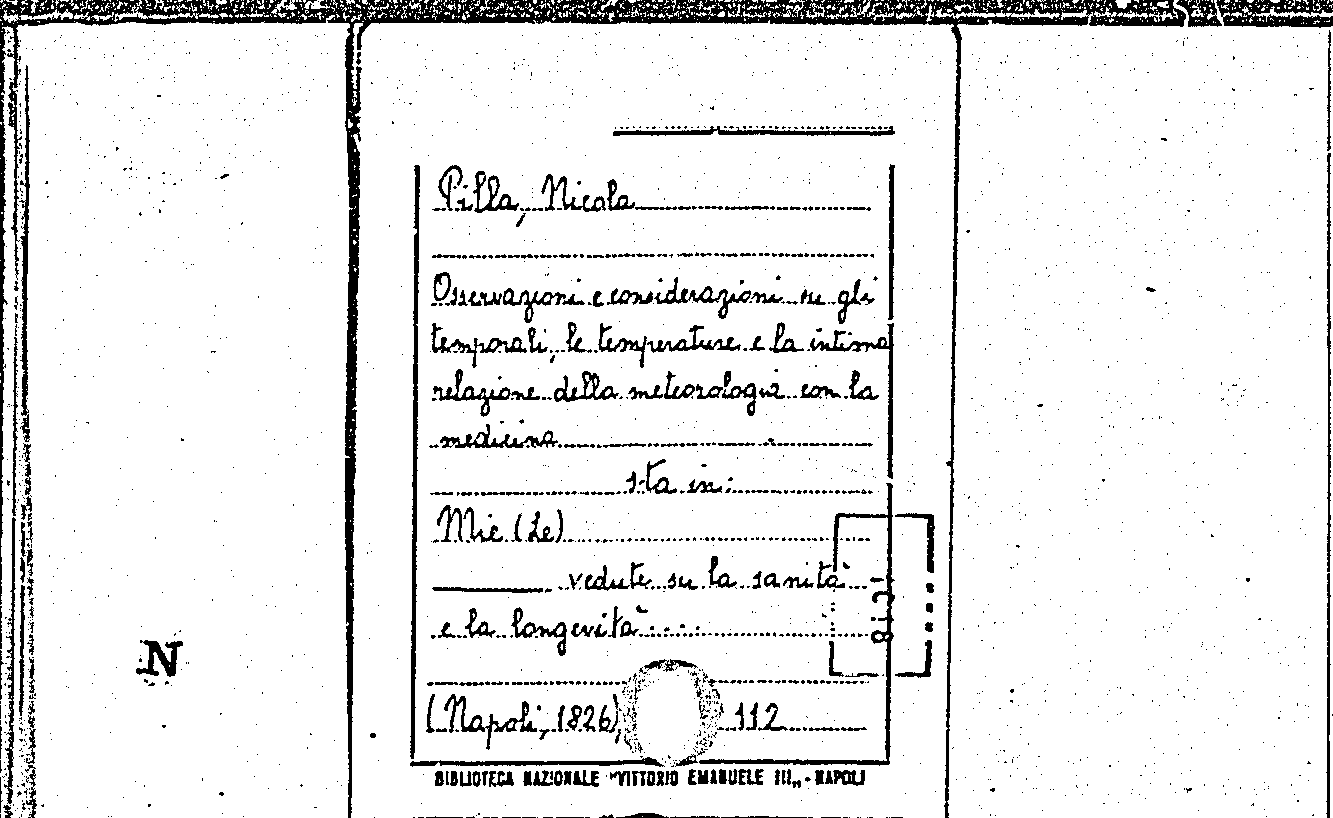 Pilla, Nicola
Osservazioni e considerazioni su gli
temporali, le temperature e la intima
relazione della meteorologia con la
medicina
sta in:
Mie (Le)
vedute su la sanità
e la longevità....
(Napoli, 1826), 112
BIBLIOTECA NAZIONALE "VITTORIO EMANUELE III„ - NAPOLI
N